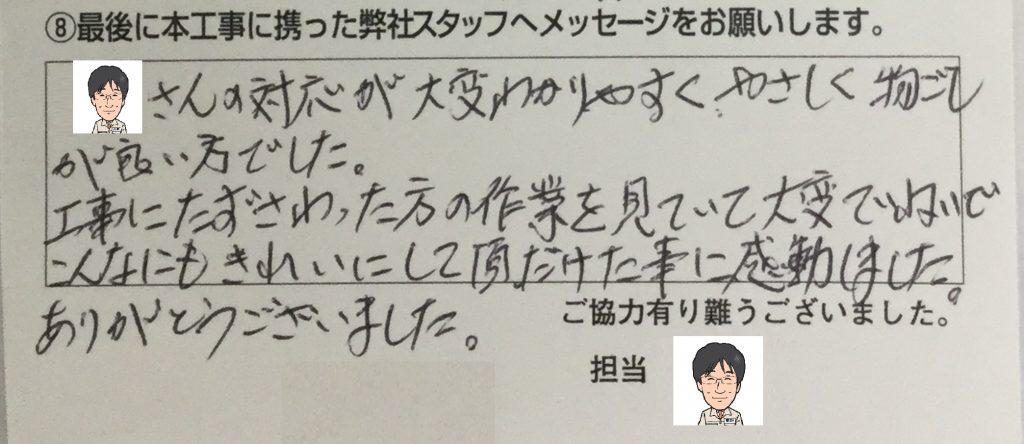 ⑧最後に本工事に携った弊社スタッフへメッセージをお願いします。
さんの対応が大変わかりやすく やさしく 物ごし
が良い方でした。
工事にたずさわった方の作業を見ていて大変ていねいで
こんなにもきれいにして頂だけた事に感動しました。
ありがとうございました。
ご協力有り難うございました。
担当